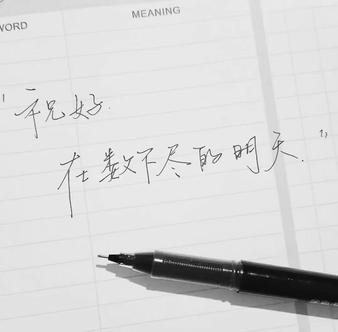 WORD MEANING
"祝好.
在数不尽的明天."